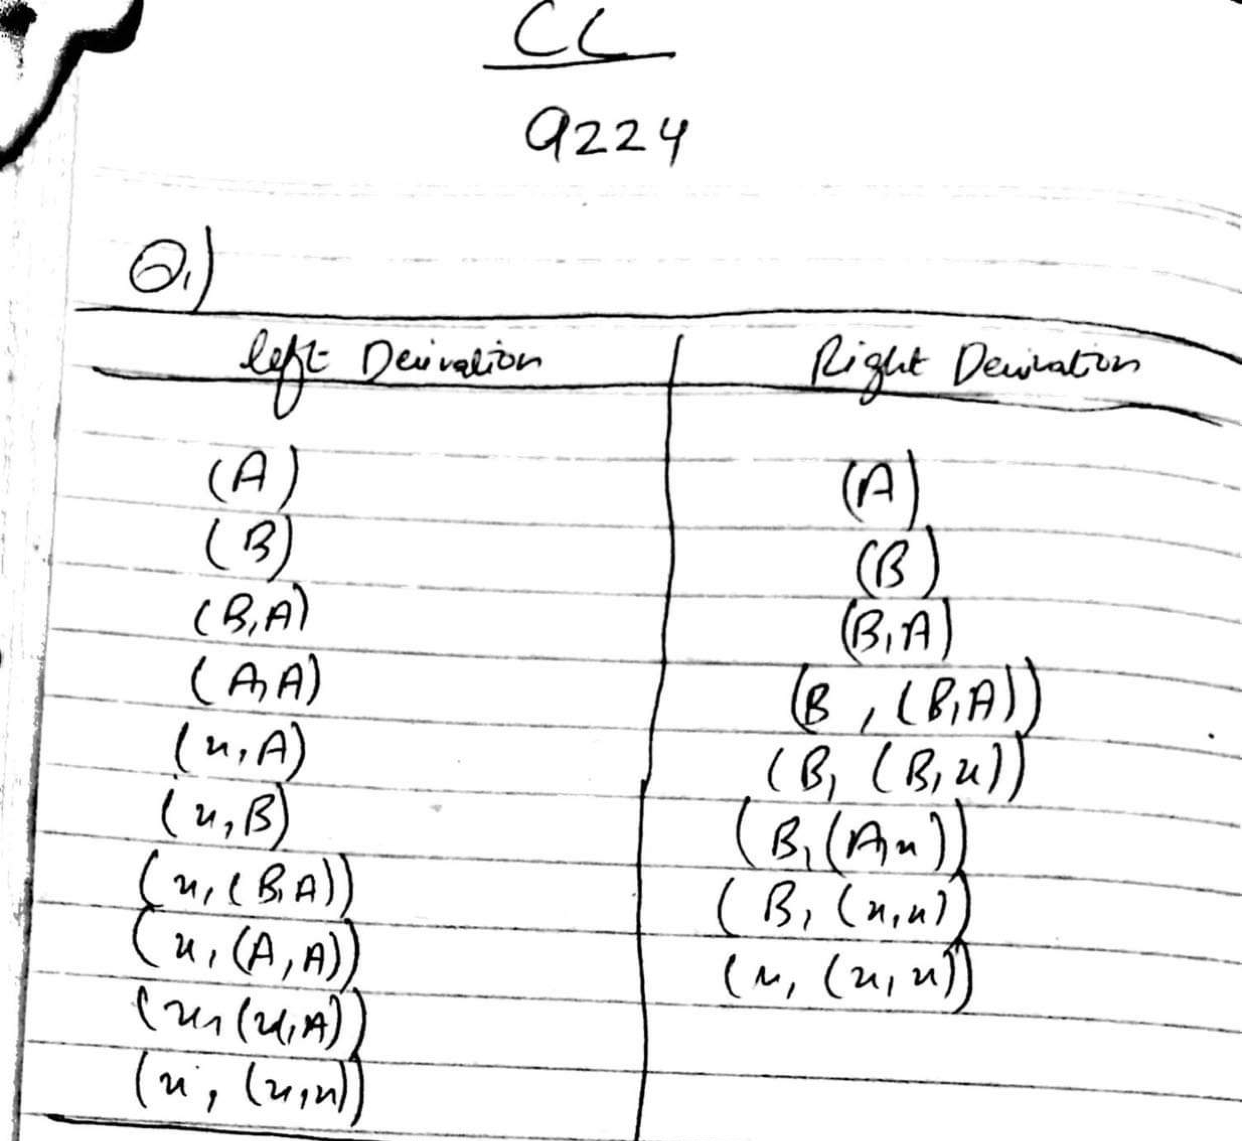 CC
9224
Q.)
left Derivation | Right Derivation
(A) | (A)
(B) | (B)
(B,A) | (B,A)
(A,A) | (B , (B,A))
(x,A) | (B, (B,x))
(x,B) | (B,(A,x))
(x,(B,A)) | (B, (x,x))
(x,(A,A)) | (x, (x,x))
(x,(x,A))
(x, (x,x))